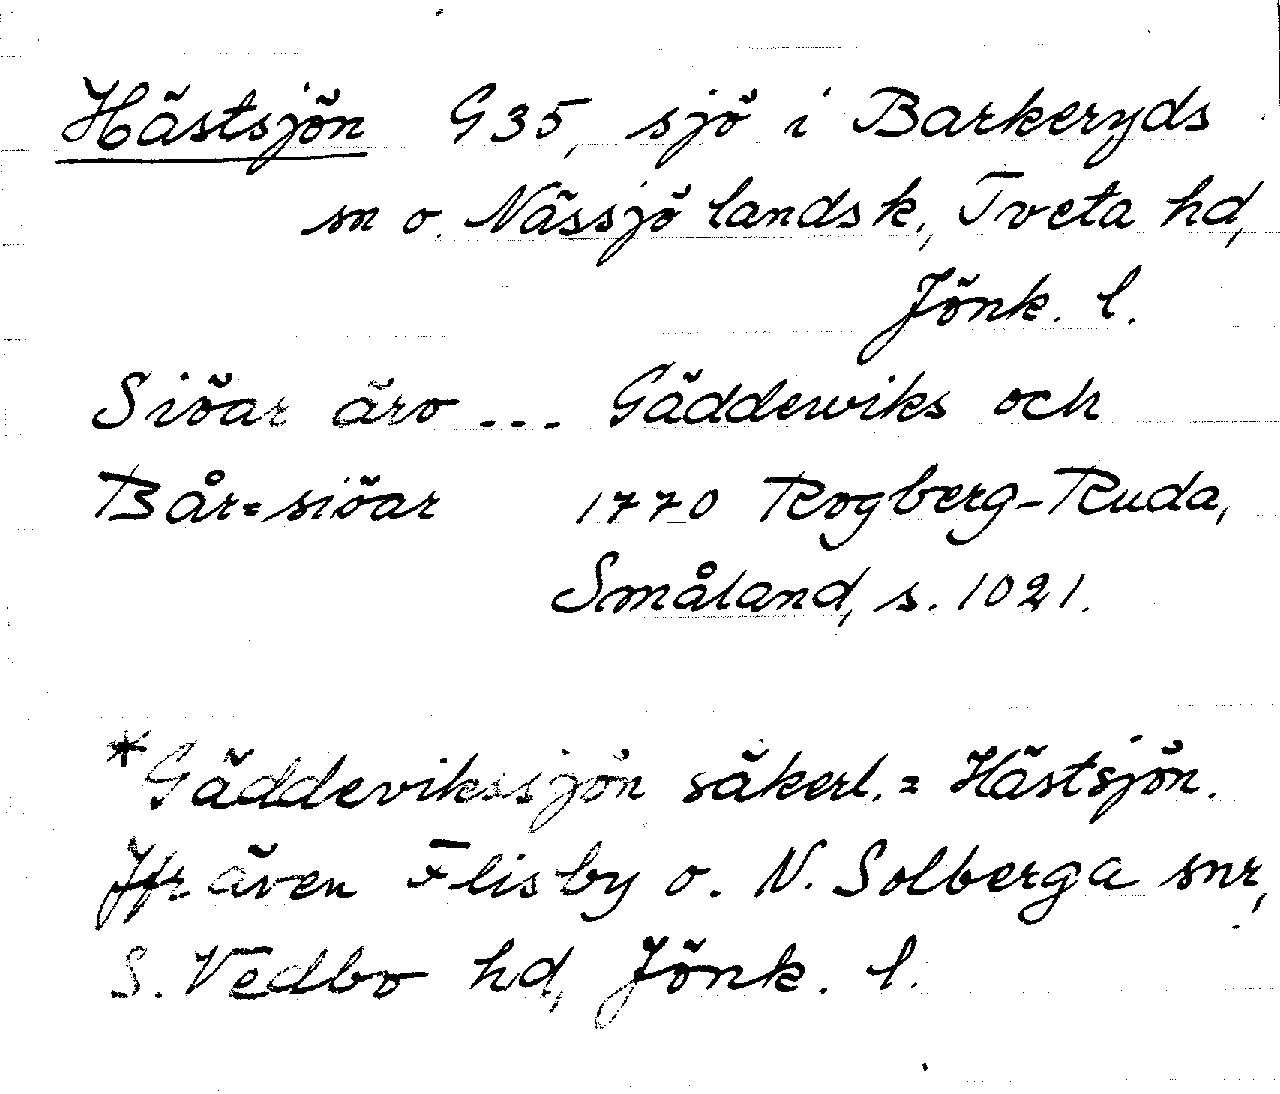 Hästsjön G35, sjö i Barkeryds
sn o. Nässjö landsk., Tveta hd,
Jönk. l.
Siöar äro ... Gäddewiks och
Bår=siöar 1770 Rogberg-Ruda,
Småland, s. 1021.
*Gäddevikssjön säkerl. = Hästsjön.
Jfr även Flisby o. N. Solberga snr,
S. Vedbo hd, Jönk. l.